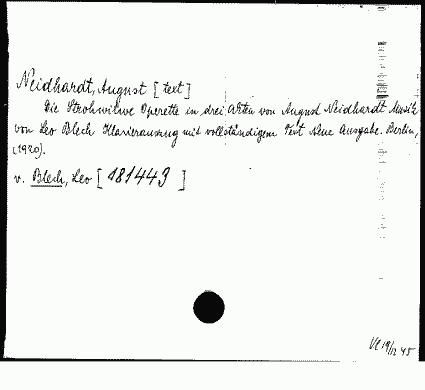 Neidhardt, August [text]
Die Strohwitwe Operette in drei Akten von August Neidhardt Musik
von Leo Blech Klavierauszug mit vollständigem Text Neue Ausgabe. Berlin,
(1920).
v. Blech, Leo [181443]
19/12 45